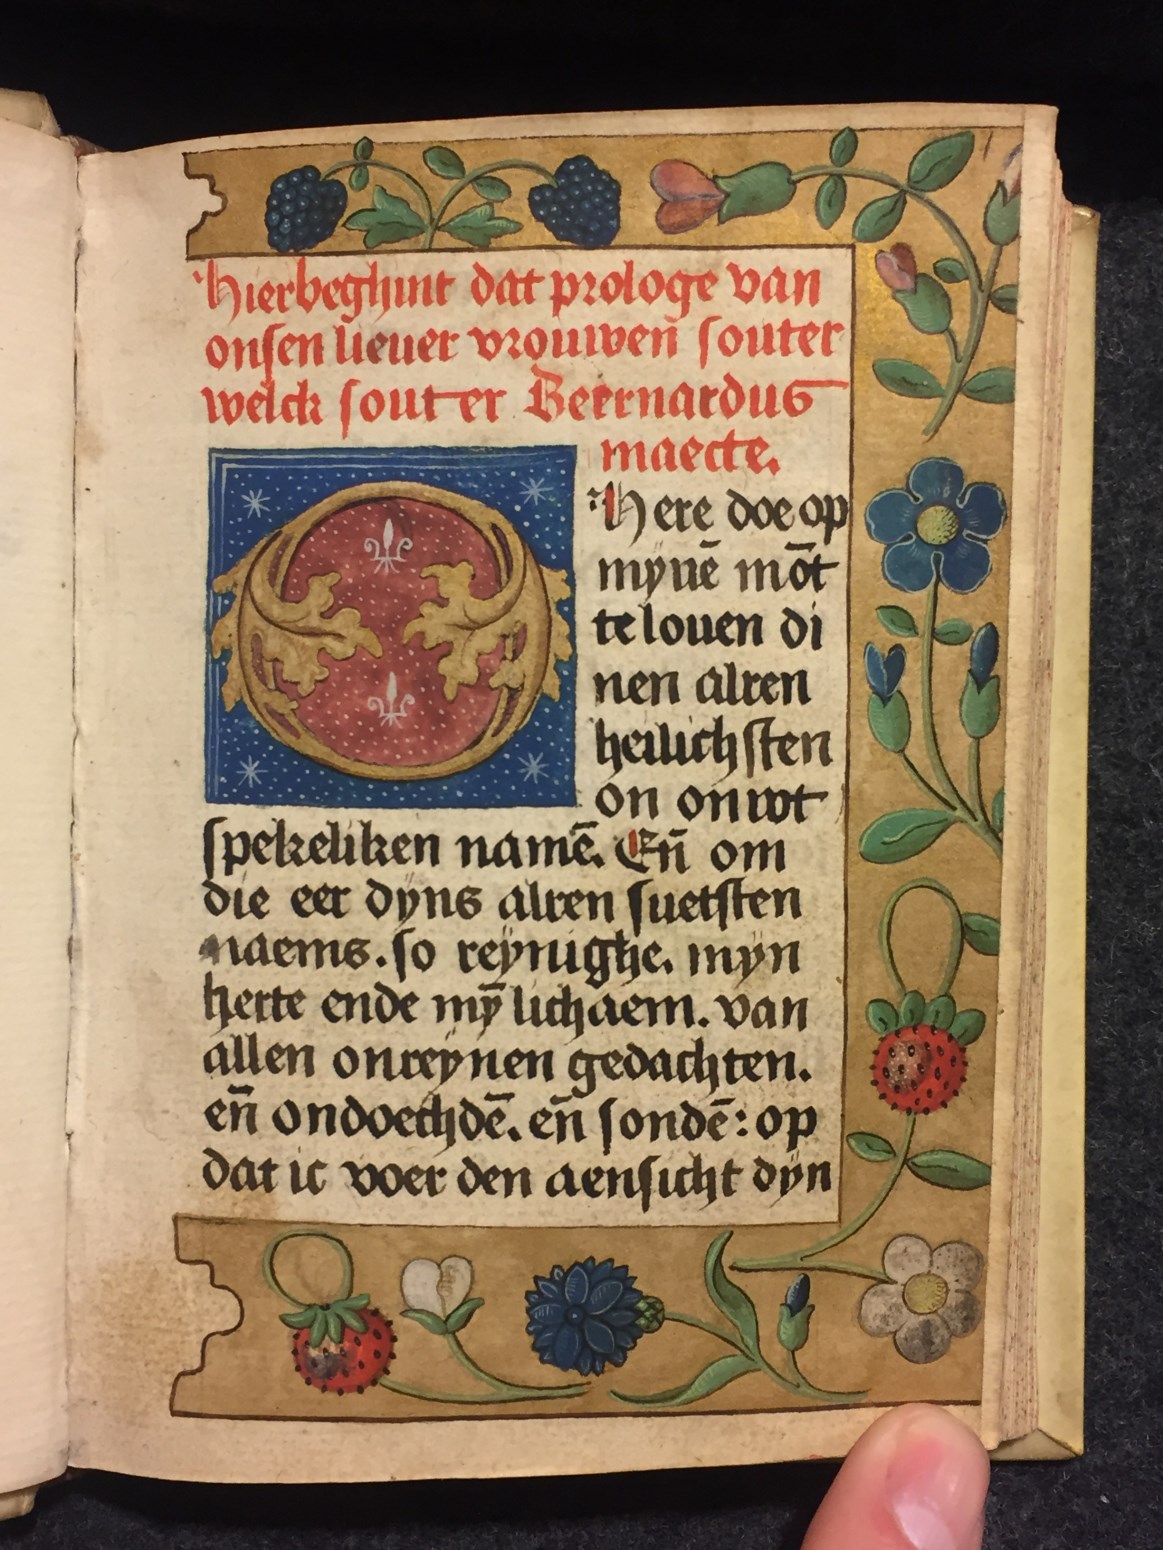 Hier beghint dat prologe van
onsen lieuer vrouwen̄ souter
welck souter Beernardus
maecte.
O Here doe op
mynē mōt
te louen di
nen alren
heilichsten
on onwt
spekeliken namē. En̄ om
die eer dyns alren suetsten
naems. so reynighe. myn
herte ende mȳ lichaem. van
allen onreynen gedachten.
en̄ ondoechdē. en̄ sondē: op
dat ic voer den aensicht dyn